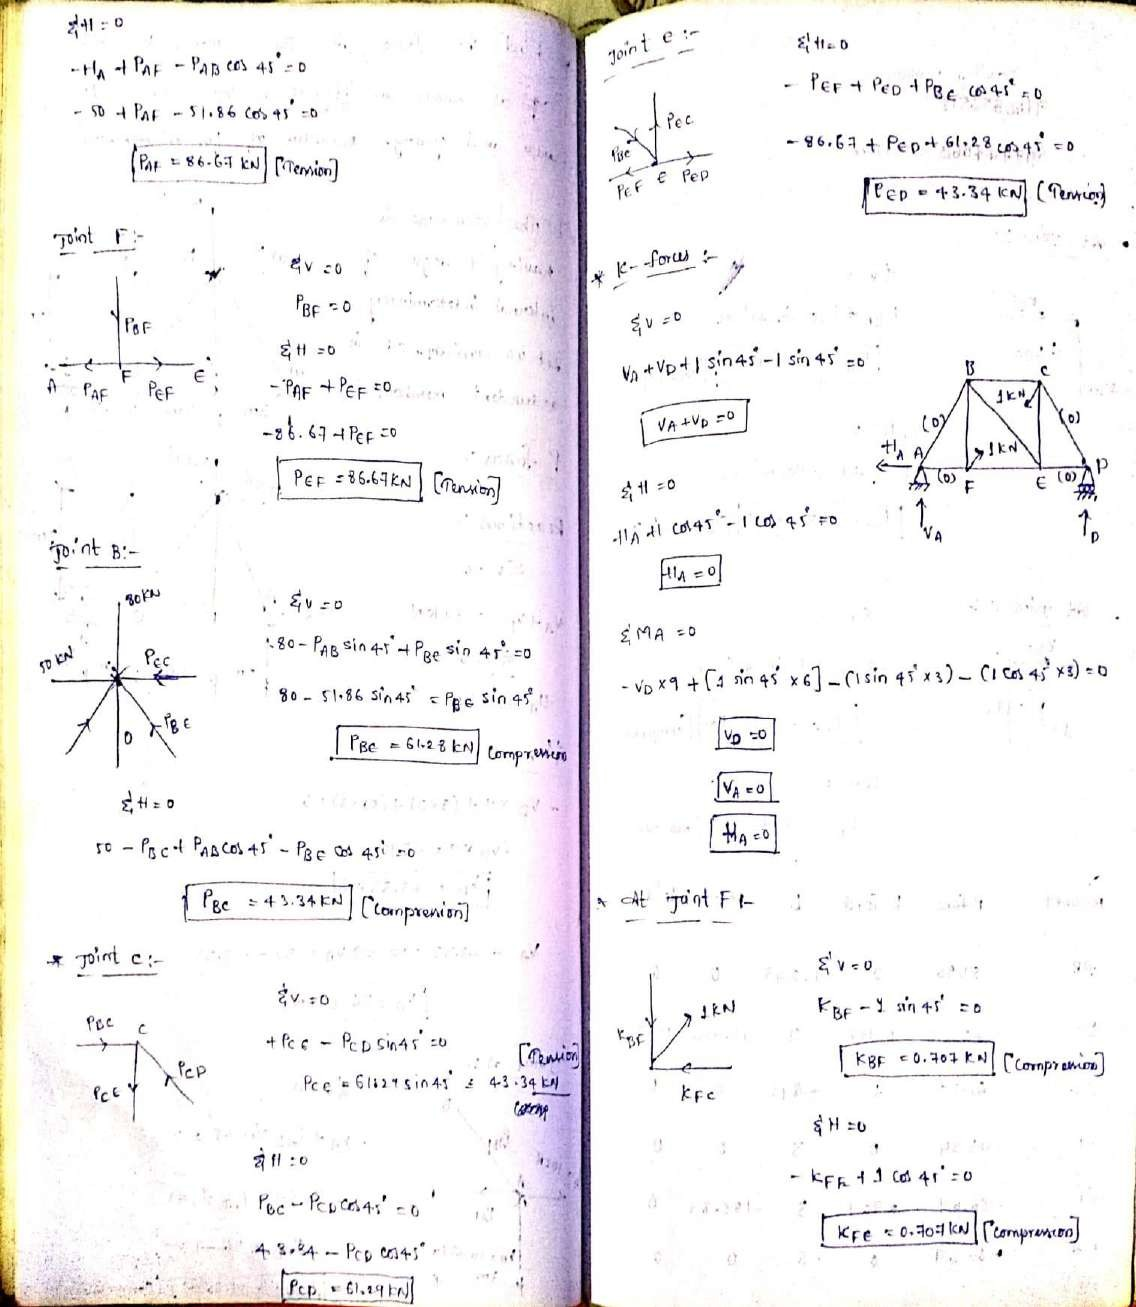 ΣH = 0
- HA + PAF - PAB cos 45° = 0
- 50 + PAF - 51.86 cos 45° = 0
PAF = 86.67 kN [Tension]
Joint F :-
PBF
A PAF F PEF E
ΣV = 0
PBF = 0
ΣH = 0
- PAF + PEF = 0
- 86.67 + PEF = 0
PEF = 86.67 KN [Tension]
Joint B :-
80 KN
50 KN
PBC
PBE
0
ΣV = 0
80 - PAB sin 45° + PBE sin 45° = 0
80 - 51.86 sin 45° = PBE sin 45°
PBE = 61.28 kN Compression
ΣH = 0
50 - PBC + PAB cos 45° - PBE cos 45° = 0
PBC = 43.34 KN [Compression]
* Joint C :-
PBC C
PCE PCD
ΣV = 0
+ PCE - PCD sin 45° = 0
PCE = 61.29 sin 45° = 43.34 KN [Tension]
ΣH = 0
PBC - PCD cos 45° = 0
43.34 - PCD cos 45°
PCD = 61.29 KN
Joint E :-
PEC
PBE
PEF E PED
ΣH = 0
- PEF + PED + PBE cos 45° = 0
- 86.67 + PED + 61.28 cos 45° = 0
PED = 43.34 KN (Tension)
* K-forces :-
ΣV = 0
VA + VD + 1 sin 45° - 1 sin 45° = 0
VA + VD = 0
B C
1 KN
(0) (0)
HA A 1 KN D
(0) F E (0)
VA D
ΣH = 0
- HA + 1 cos 45° - 1 cos 45° = 0
HA = 0
ΣMA = 0
- VD x 9 + [1 sin 45° x 6] - (1 sin 45° x 3) - (1 cos 45° x 3) = 0
VD = 0
VA = 0
HA = 0
* At Joint F :-
KBF
1 KN
KFE
ΣV = 0
KBF - 1 sin 45° = 0
KBF = 0.707 KN [Compression]
ΣH = 0
- KFE + 1 cos 45° = 0
KFE = 0.707 KN [Compression]